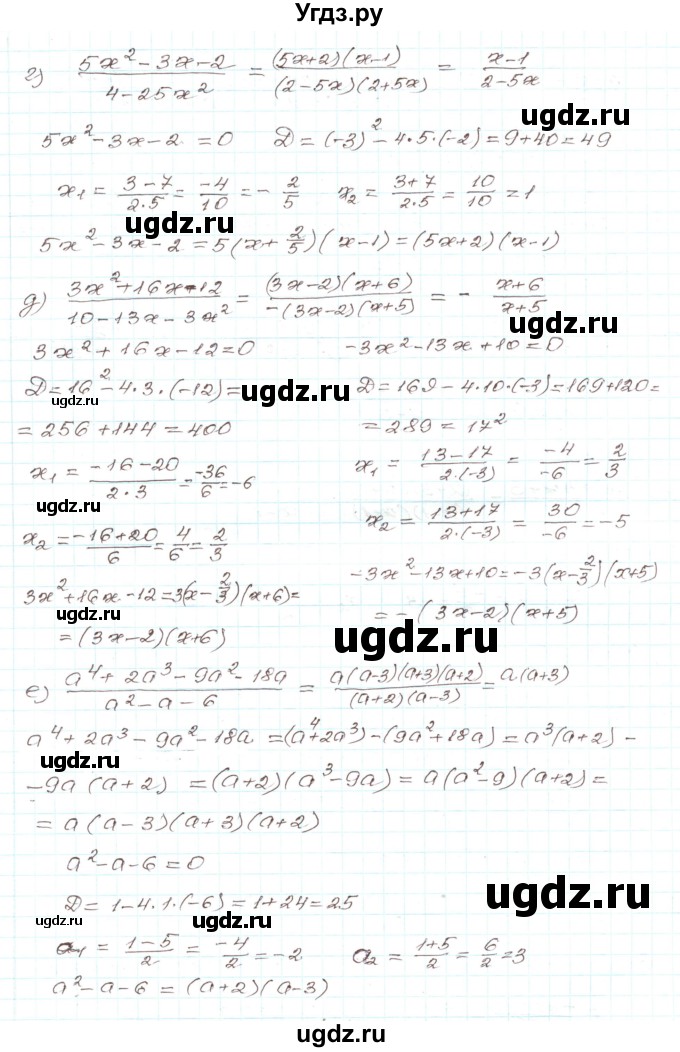 Угдз.ру
г) (5x² - 3x - 2)/(4 - 25x²) = (5x+2)(x-1)/((2-5x)(2+5x)) = (x-1)/(2-5x)
5x² - 3x - 2 = 0 D = (-3)² - 4·5·(-2) = 9 + 40 = 49
x₁ = (3-7)/(2·5) = -4/10 = -2/5 x₂ = (3+7)/(2·5) = 10/10 = 1
ugdz.ru
ugdz.ru
5x² - 3x - 2 = 5(x + 2/5)(x-1) = (5x+2)(x-1)
д) (3x² + 16x - 12)/(10 - 13x - 3x²) = (3x-2)(x+6)/(-(3x-2)(x+5)) = - (x+6)/(x+5)
ugdz.ru
ugdz.ru
3x² + 16x - 12 = 0 -3x² - 13x + 10 = 0
D = 16² - 4·3·(-12) = D = 169 - 4·10·(-3) = 169 + 120 =
ugdz.ru
ugdz.ru
= 256 + 144 = 400 = 289 = 17²
x₁ = (-16-20)/(2·3) = -36/6 = -6 x₁ = (13-17)/(2·(-3)) = -4/-6 = 2/3
ugdz.ru
x₂ = (-16+20)/6 = 4/6 = 2/3 x₂ = (13+17)/(2·(-3)) = 30/-6 = -5
3x² + 16x - 12 = 3(x - 2/3)(x+6) = -3x² - 13x + 10 = -3(x - 2/3)(x+5)
ugdz.ru
ugdz.ru
= (3x-2)(x+6) = -(3x-2)(x+5)
ugdz.ru
е) (a⁴ + 2a³ - 9a² - 18a)/(a² - a - 6) = a(a-3)(a+3)(a+2)/((a+2)(a-3)) = a(a+3)
a⁴ + 2a³ - 9a² - 18a = (a⁴+2a³) - (9a²+18a) = a³(a+2) -
ugdz.ru
- 9a(a+2) = (a+2)(a³ - 9a) = a(a² - 9)(a+2) =
= a(a-3)(a+3)(a+2)
a² - a - 6 = 0
ugdz.ru
D = 1 - 4·1·(-6) = 1 + 24 = 25
ugdz.ru
ugdz.ru
a₁ = (1-5)/2 = -4/2 = -2 a₂ = (1+5)/2 = 6/2 = 3
a² - a - 6 = (a+2)(a-3)
ugdz.ru